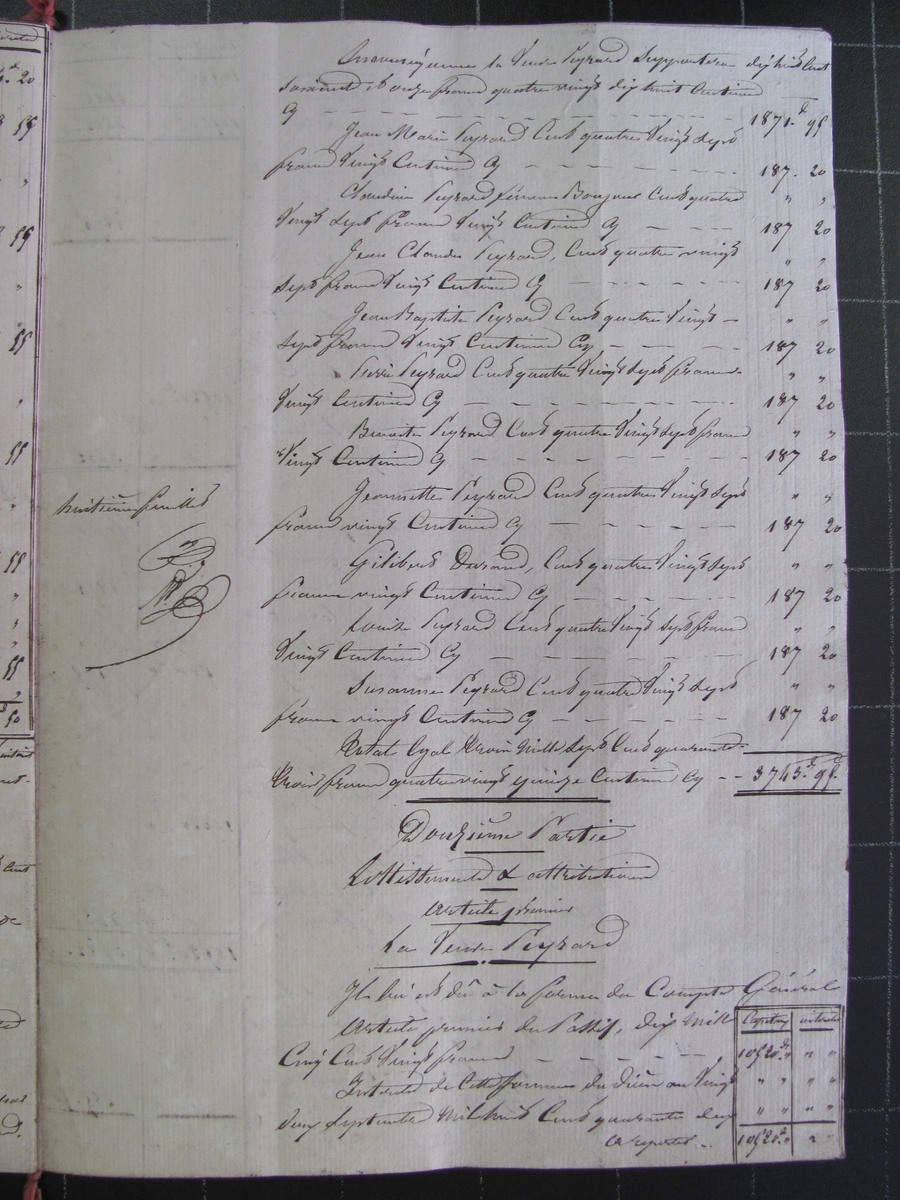 En conséquence la Veuve Peyrard Supportera dix huit Cent
Soixante et onze francs quatre vingt dix huit Centimes
Cy 1871.f 98
Jean Marie Peyrard Cent quatre Vingt Sept
francs Vingt Centimes Cy 187. 20
Claudine Peyrard femme Cent quatre " "
Vingt Sept francs Vingt Centimes Cy 187 20
Jean Claude Peyrard, Cent quatre vingt " "
Sept francs Vingt Centimes Cy 187 20
Jean Baptiste Peyrard Cent quatre Vingt " "
Sept francs Vingt Centimes Cy 187 20
Pierre Peyrard Cent quatre Vingt Sept francs " "
Vingt Centimes Cy 187 20
Benoite Peyrard Cent quatre Vingt Sept francs " "
Vingt Centimes Cy 187 20
Jeannette Peyrard Cent quatre Vingt Sept " "
francs vingt Centimes Cy 187 20
Gilibert Durand, Cent quatre Vingt Sept " "
francs vingt Centimes Cy 187 20
Louise Peyrard Cent quatre Vingt Sept francs " "
Vingt Centimes Cy 187 20
Susanne Peyrard Cent quatre Vingt Sept " "
francs vingt Centimes Cy 187 20
Total égal trois Mille Sept Cent quarante
trois francs quatre vingt Centimes Cy 3743.f 98
huitième feuillet
Douzième Partie
Lottissements & attributions
article premier
La Veuve Peyrard
Il lui est dû à la forme du Compte Général
article premier du Passif, dix Mille
Capitaux intérêts
Cinq Cent Vingt francs 10520.f " "
Intérêts de cette somme du Vingt " " " "
deux Septembre Mil huit Cent quarante deux " " " "
a reporter 10520.f " "